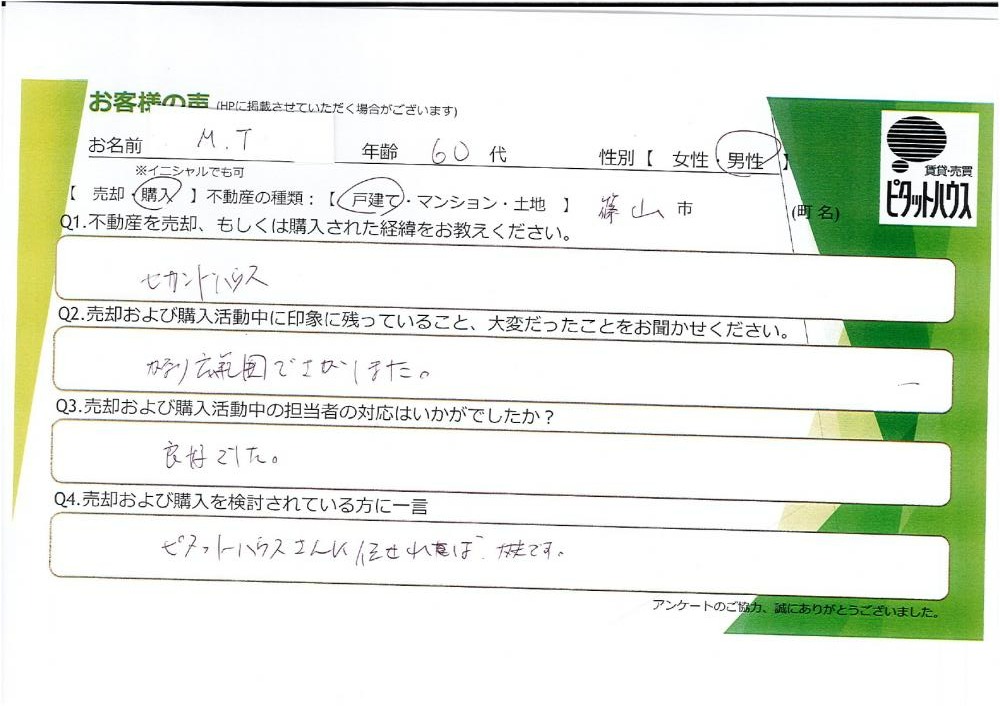 お客様の声 (HPに掲載させていただく場合がございます)
お名前 M.T 年齢 60 代 性別【 女性・男性 】
※イニシャルでも可
賃貸・売買
ピタットハウス
【 売却・購入 】不動産の種類:【 戸建て・マンション・土地 】 篠山 市 (町名)
Q1.不動産を売却、もしくは購入された経緯をお教えください。
セカンドハウス
Q2.売却および購入活動中に印象に残っていること、大変だったことをお聞かせください。
かなり広範囲でさがしました。
Q3.売却および購入活動中の担当者の対応はいかがでしたか?
良好でした。
Q4.売却および購入を検討されている方に一言
ピタットハウスさんに任せれば、です。
アンケートのご協力、誠にありがとうございました。